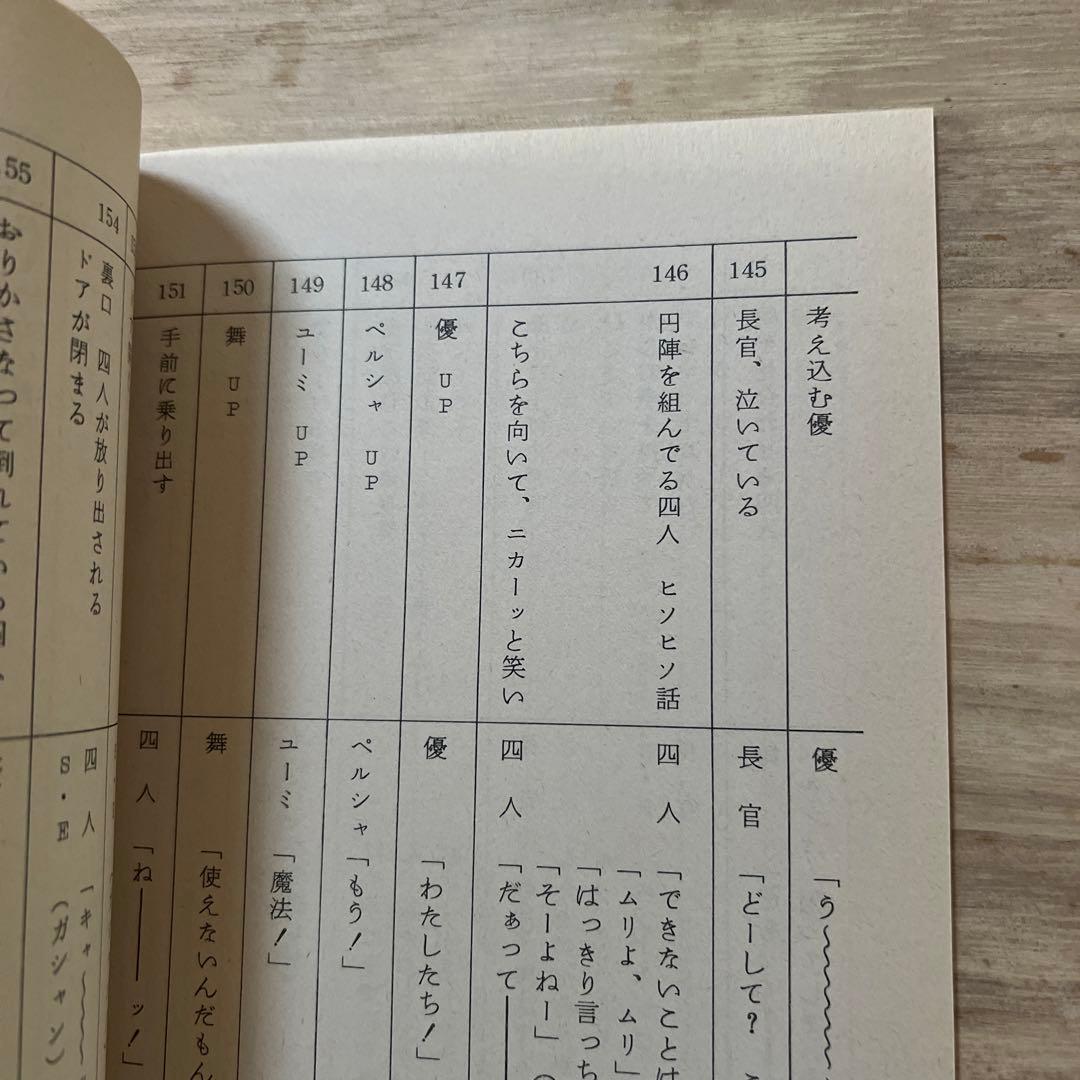 考え込む優
優
「う～～～～
145
長官、泣いている
長官
「どーして?
146
円陣を組んでる四人 ヒソヒソ話
四人
「できないことは
「ムリよ、ムリ」
「はっきり言っち
「そーよねー」
こちらを向いて、ニカーッと笑い
四人
「だぁって――
147
優 UP
優
「わたしたち!」
148
ペルシャ UP
ペルシャ
「もう!」
149
ユーミ UP
ユーミ
「魔法!」
150
舞 UP
舞
「使えないんだもん
151
手前に乗り出す
四人
「ね――ッ!」
154
裏口 四人が放り出される
ドアが閉まる
四人
「キャ～～
S・E
(ガシャン)
55
おりかさなって倒れている四